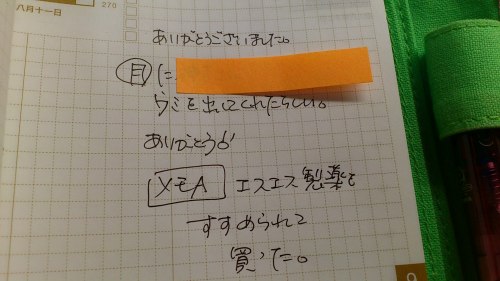 八月十一日 270
ありがとうございました。
目 に
ウミを出してくれたらしい。
ありがとう
メモA エスエス製薬
すすめられて
買った。
9